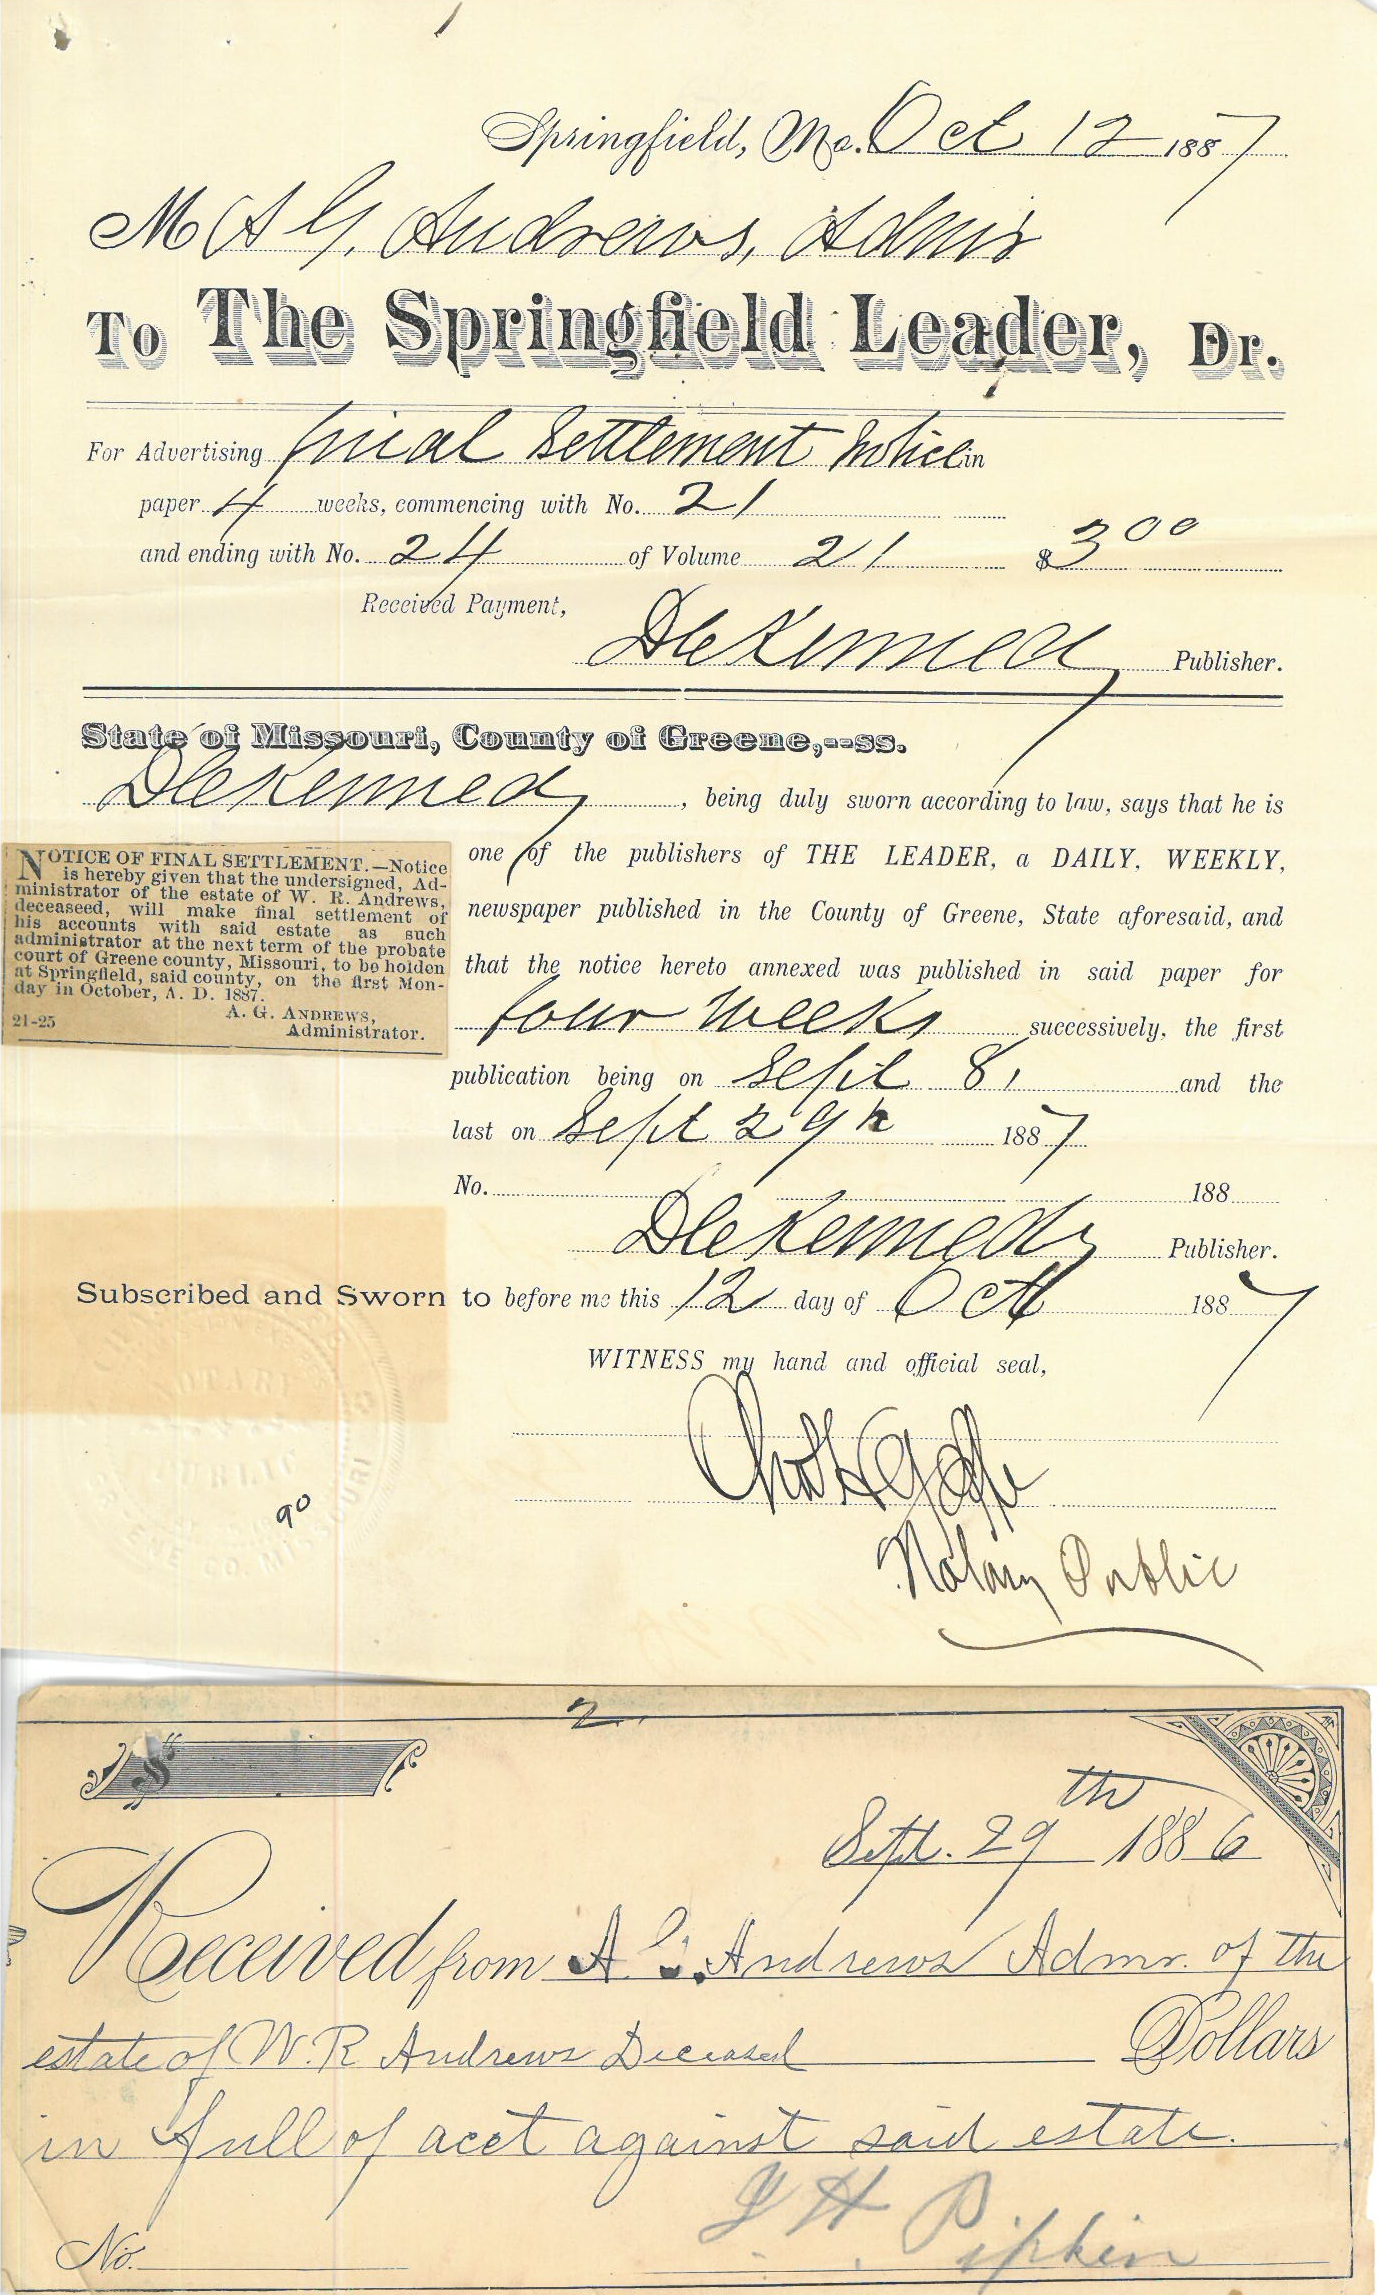 1
Springfield, Mo. Oct 12 1887
M A G. Andrews, Admr
To The Springfield Leader, Dr.
For Advertising final Settlement Notice in
paper 4 weeks, commencing with No. 21
and ending with No. 24 of Volume 21 $3 00
Received Payment,
D C Kennedy Publisher.
State of Missouri, County of Greene,--ss.
D C Kennedy, being duly sworn according to law, says that he is
one of the publishers of THE LEADER, a DAILY, WEEKLY,
newspaper published in the County of Greene, State aforesaid, and
that the notice hereto annexed was published in said paper for
four weeks successively, the first
publication being on Sept 8, and the
last on Sept 29th 1887
No. 188
D C Kennedy Publisher.
NOTICE OF FINAL SETTLEMENT.—Notice
is hereby given that the undersigned, Ad-
ministrator of the estate of W. R. Andrews,
deceased, will make final settlement of
his accounts with said estate as such
administrator at the next term of the probate
court of Greene county, Missouri, to be holden
at Springfield, said county, on the first Mon-
day in October, A. D. 1887.
A. G. ANDREWS,
21-25 Administrator.
Subscribed and Sworn to before me this 12 day of Oct 1887
WITNESS my hand and official seal,
Notary Public
NOTARY
PUBLIC
GREENE CO. MISSOURI
90
2.
$
Sept. 29th 1886
Received from A. G. Andrews Admr. of the
estate of W. R Andrews Deceased Dollars
in full of acct against said estate.
H Pipkin
No.